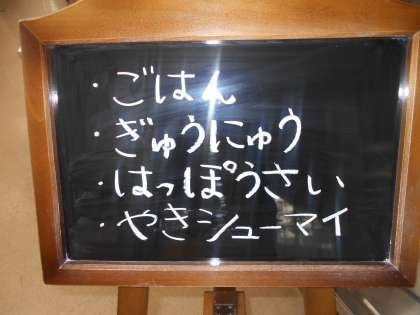 ・ごはん
・ぎゅうにゅう
・はっぽうさい
・やきシューマイ